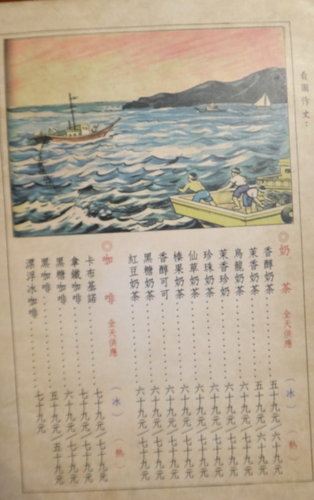 看圖作文：
◎奶茶 全天供應 （冰） （熱）
香醇奶茶……五十九元／六十九元
茉香奶茶……五十九元／六十九元
烏龍奶茶……六十九元／七十九元
茉香珍奶……六十九元／七十九元
珍珠奶茶……六十九元／七十九元
仙草奶茶……六十九元／七十九元
榛果奶茶……六十九元／七十九元
香醇可可……六十九元／七十九元
黑糖奶茶……六十九元／七十九元
紅豆奶茶……六十九元／七十九元
◎咖啡 全天供應 （冰） （熱）
卡布基諾……七十九元／七十九元
拿鐵咖啡……七十九元／七十九元
黑糖咖啡……六十九元／七十九元
黑咖啡……五十九元／五十九元
漂浮冰咖啡……七十九元